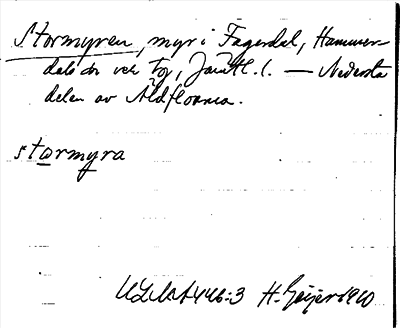 Stormyren, myr i Fagerdal, Hammer-
dals sn och tg, Jämtl. l. — Nedersta
delen av Ald.floarna.
stormyra
ULMA 446:3 H. Geijer 1910